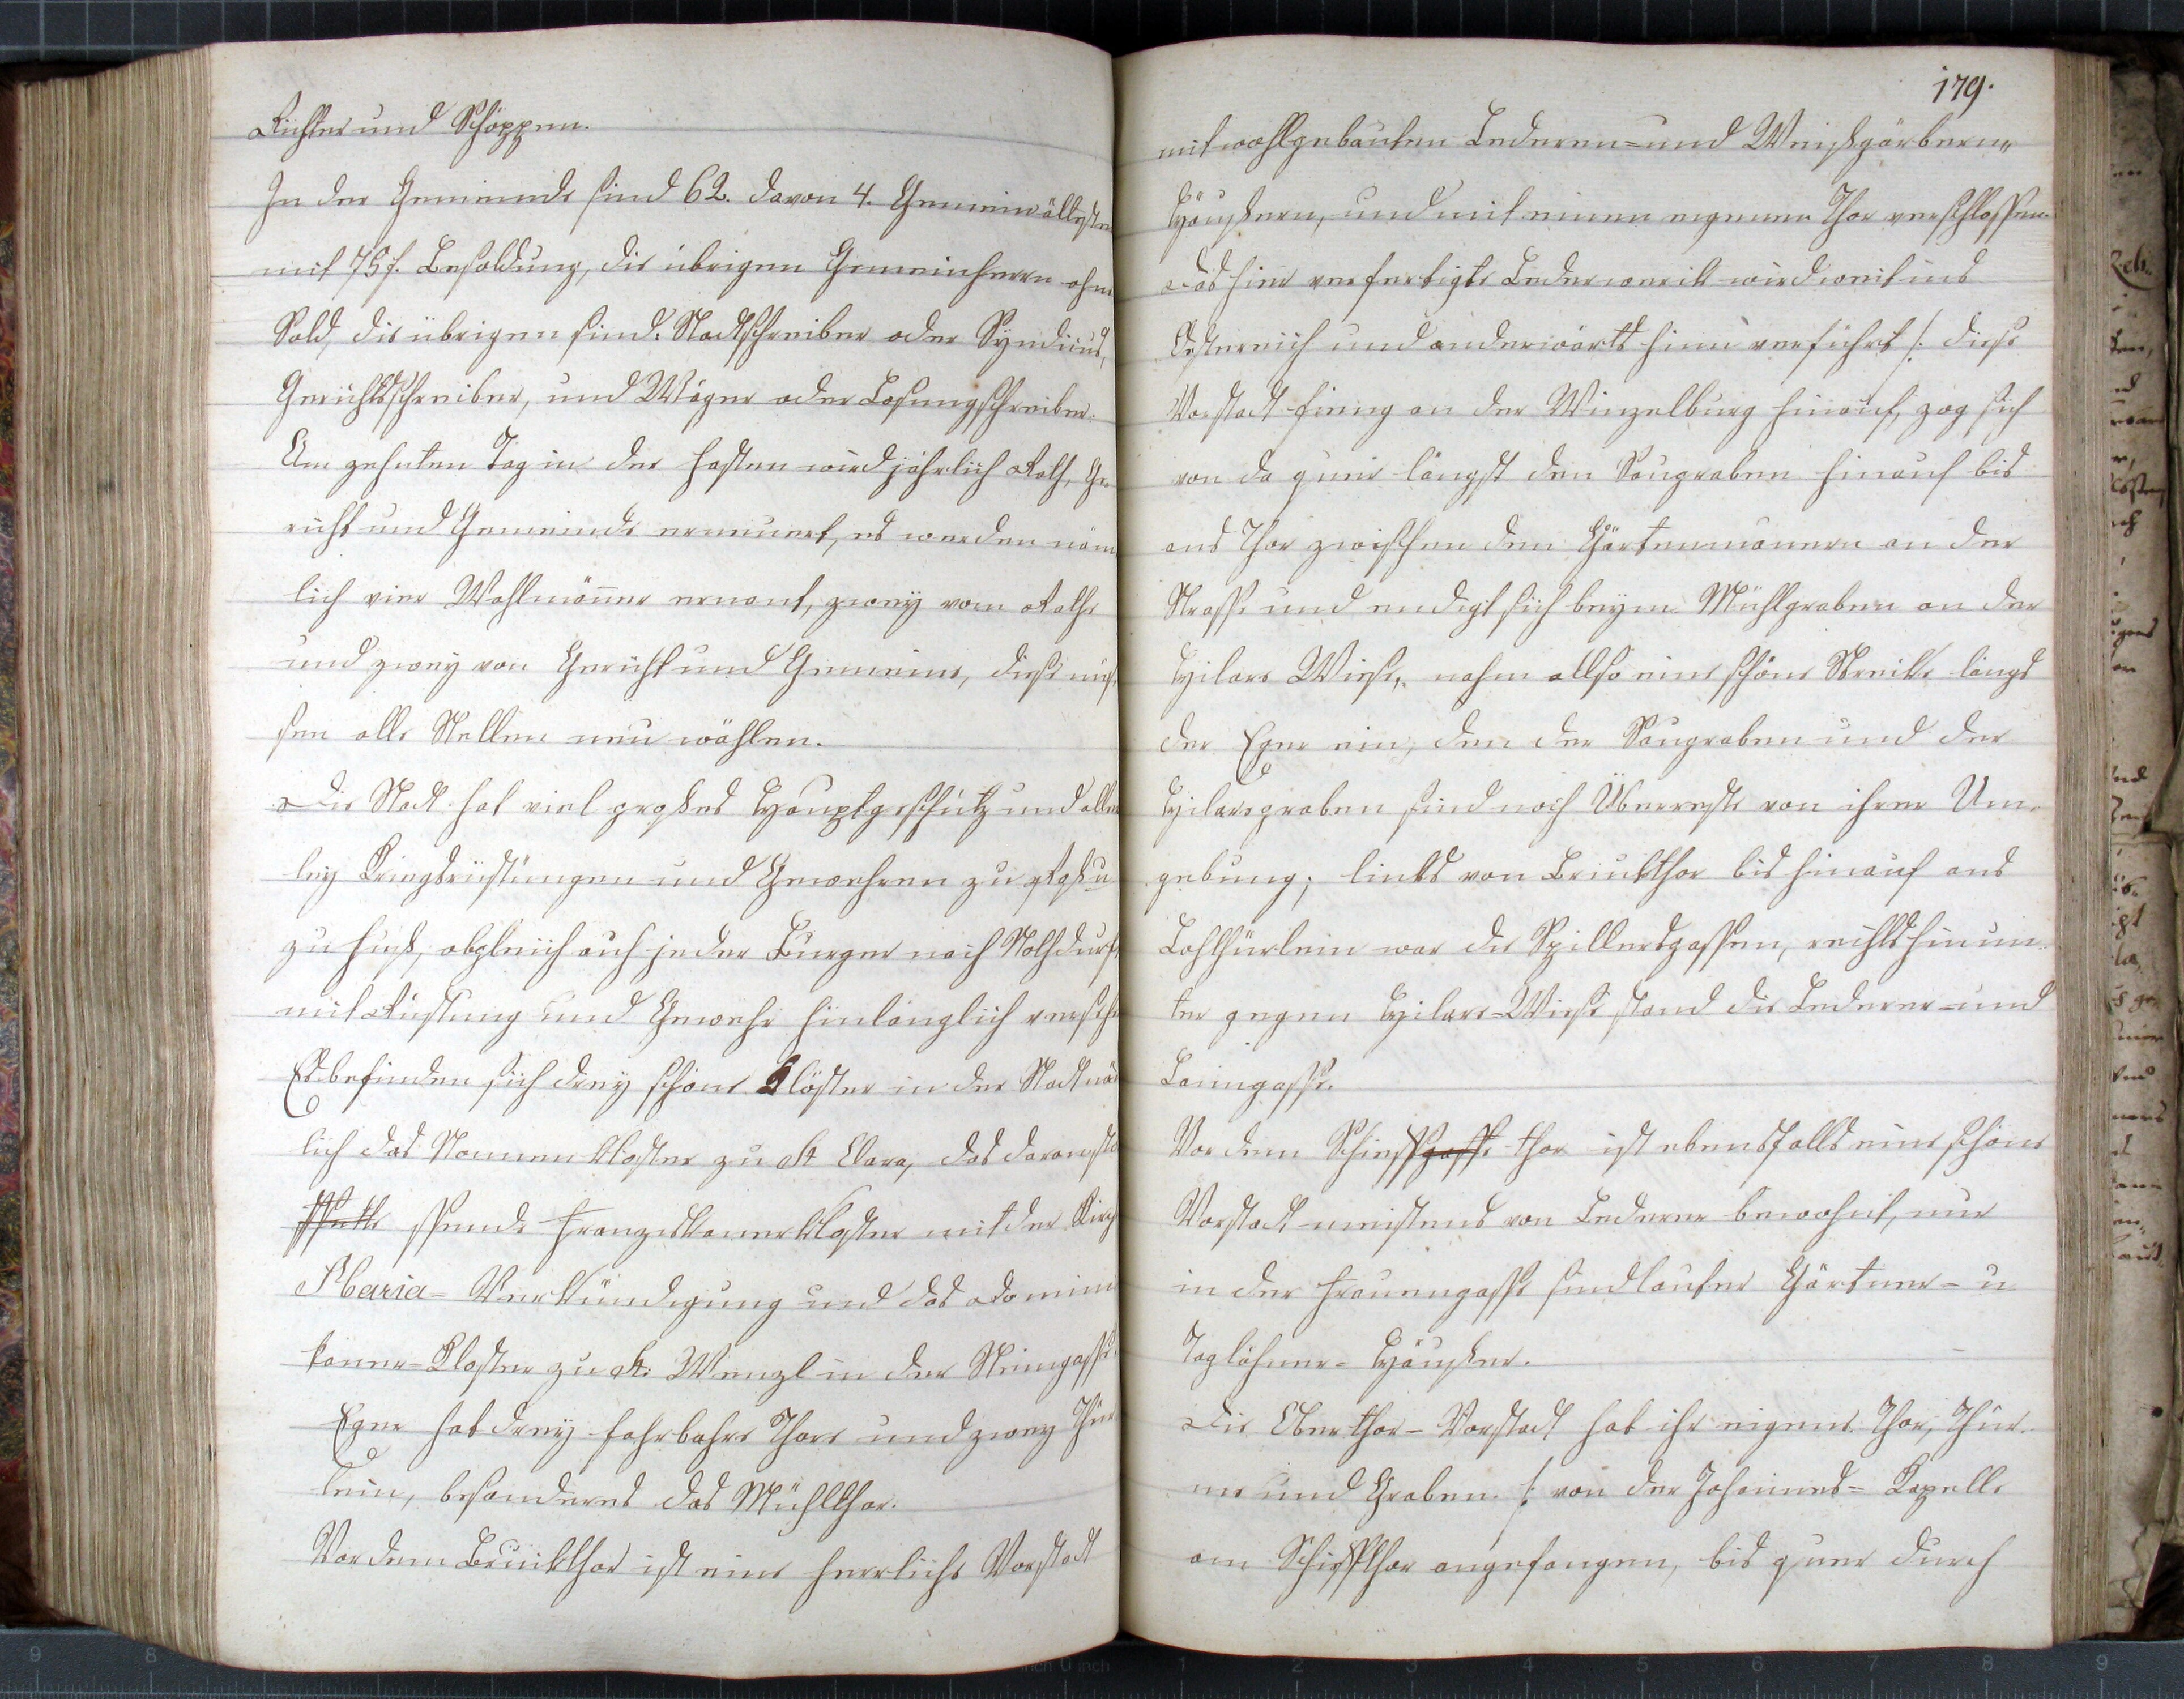 Richter und Schöppen.
In der Gemeinde sind 62. davon 4. Gemeinälteste
mit 75 f. Besoldung, die übrigen Gemeinherrn ohne
Sold, die übrigen sind: Stadtschreiber oder Syndicus,
Gerichtsschreiber, und Wäger oder Losungschreiber.
Am zehnten Tag in der Fasten wird jährlich Rath, Ge
richt und Gemeinde erneuert, es werden näm
lich vier Wahlmänner ernant, zwey vom Rathe
und zwey von Gericht und Gemeine, diese müs
sen alle Stellen neu wählen.
Die Stadt hat viel großes Hauptgeschütz und aller
ley Kriegsrüstungen und Gewehren zu Roß u
zu Fuß, obgleich auch jeder Burger nach Nothdurft
mit Rüstung und Gewehr hinlänglich versehn
Es befinden sich drey schöne Klöster in der Stadt näm
lich das Nonnenkloster zu St Clara, das daransto
ssende Franziskanerkloster mit der Kirch
Maria-Verkündigung und das Domini
kaner-Kloster zu St: Wenzl in der Steingasse.
Eger hat drey fahrbahre Thore und zwey Thür
lein, besonderes das Mühlthor.
Vor dem Bruckthor ist eine herrliche Vorstadt
179.
mit wohlgebauten Lederern- und Weißgärbern-
Häußern, und mit einem eigenen Thor verschlossen.
Das hier verfertigte Lederwerik wird weit ins
Östereich und anderwärts hin verführt /: diese
Vorstadt fieng an der Winzelburg hinauf, zog sich
von da quer längst den Saugraben hinauf bis
ans Thor zwischen den Gärtenmauern an der
Strasse und endigt sich beym Mühlgraben an der
Hilars Wiese, nahm allso eine schöne Strecke längs
der Eger ein, den der Saugraben und der
Hilarsgraben sind noch Überreste von ihrer Um-
gebung; links von Bruckthor bis hinauf ans
Lohthürlein war die Spillersgassen, rechts hinun-
ter gegen Hilars-Wiese stand die Lederer- und
Laimgasse.
Vor dem Schiffgasse thor ist ebensfalls eine schöne
Vorstadt meistens von Lederer bewohnt, nur
in der Frauengasse sind lauter Gärtner- u
Taglöhner-Häußer.
Die Oberthor-Vorstadt hat ihr eigens Thor, Thür-
me und Graben /: von der Johannes-Kapelle
am Schiffthor angefangen, bis quer durch